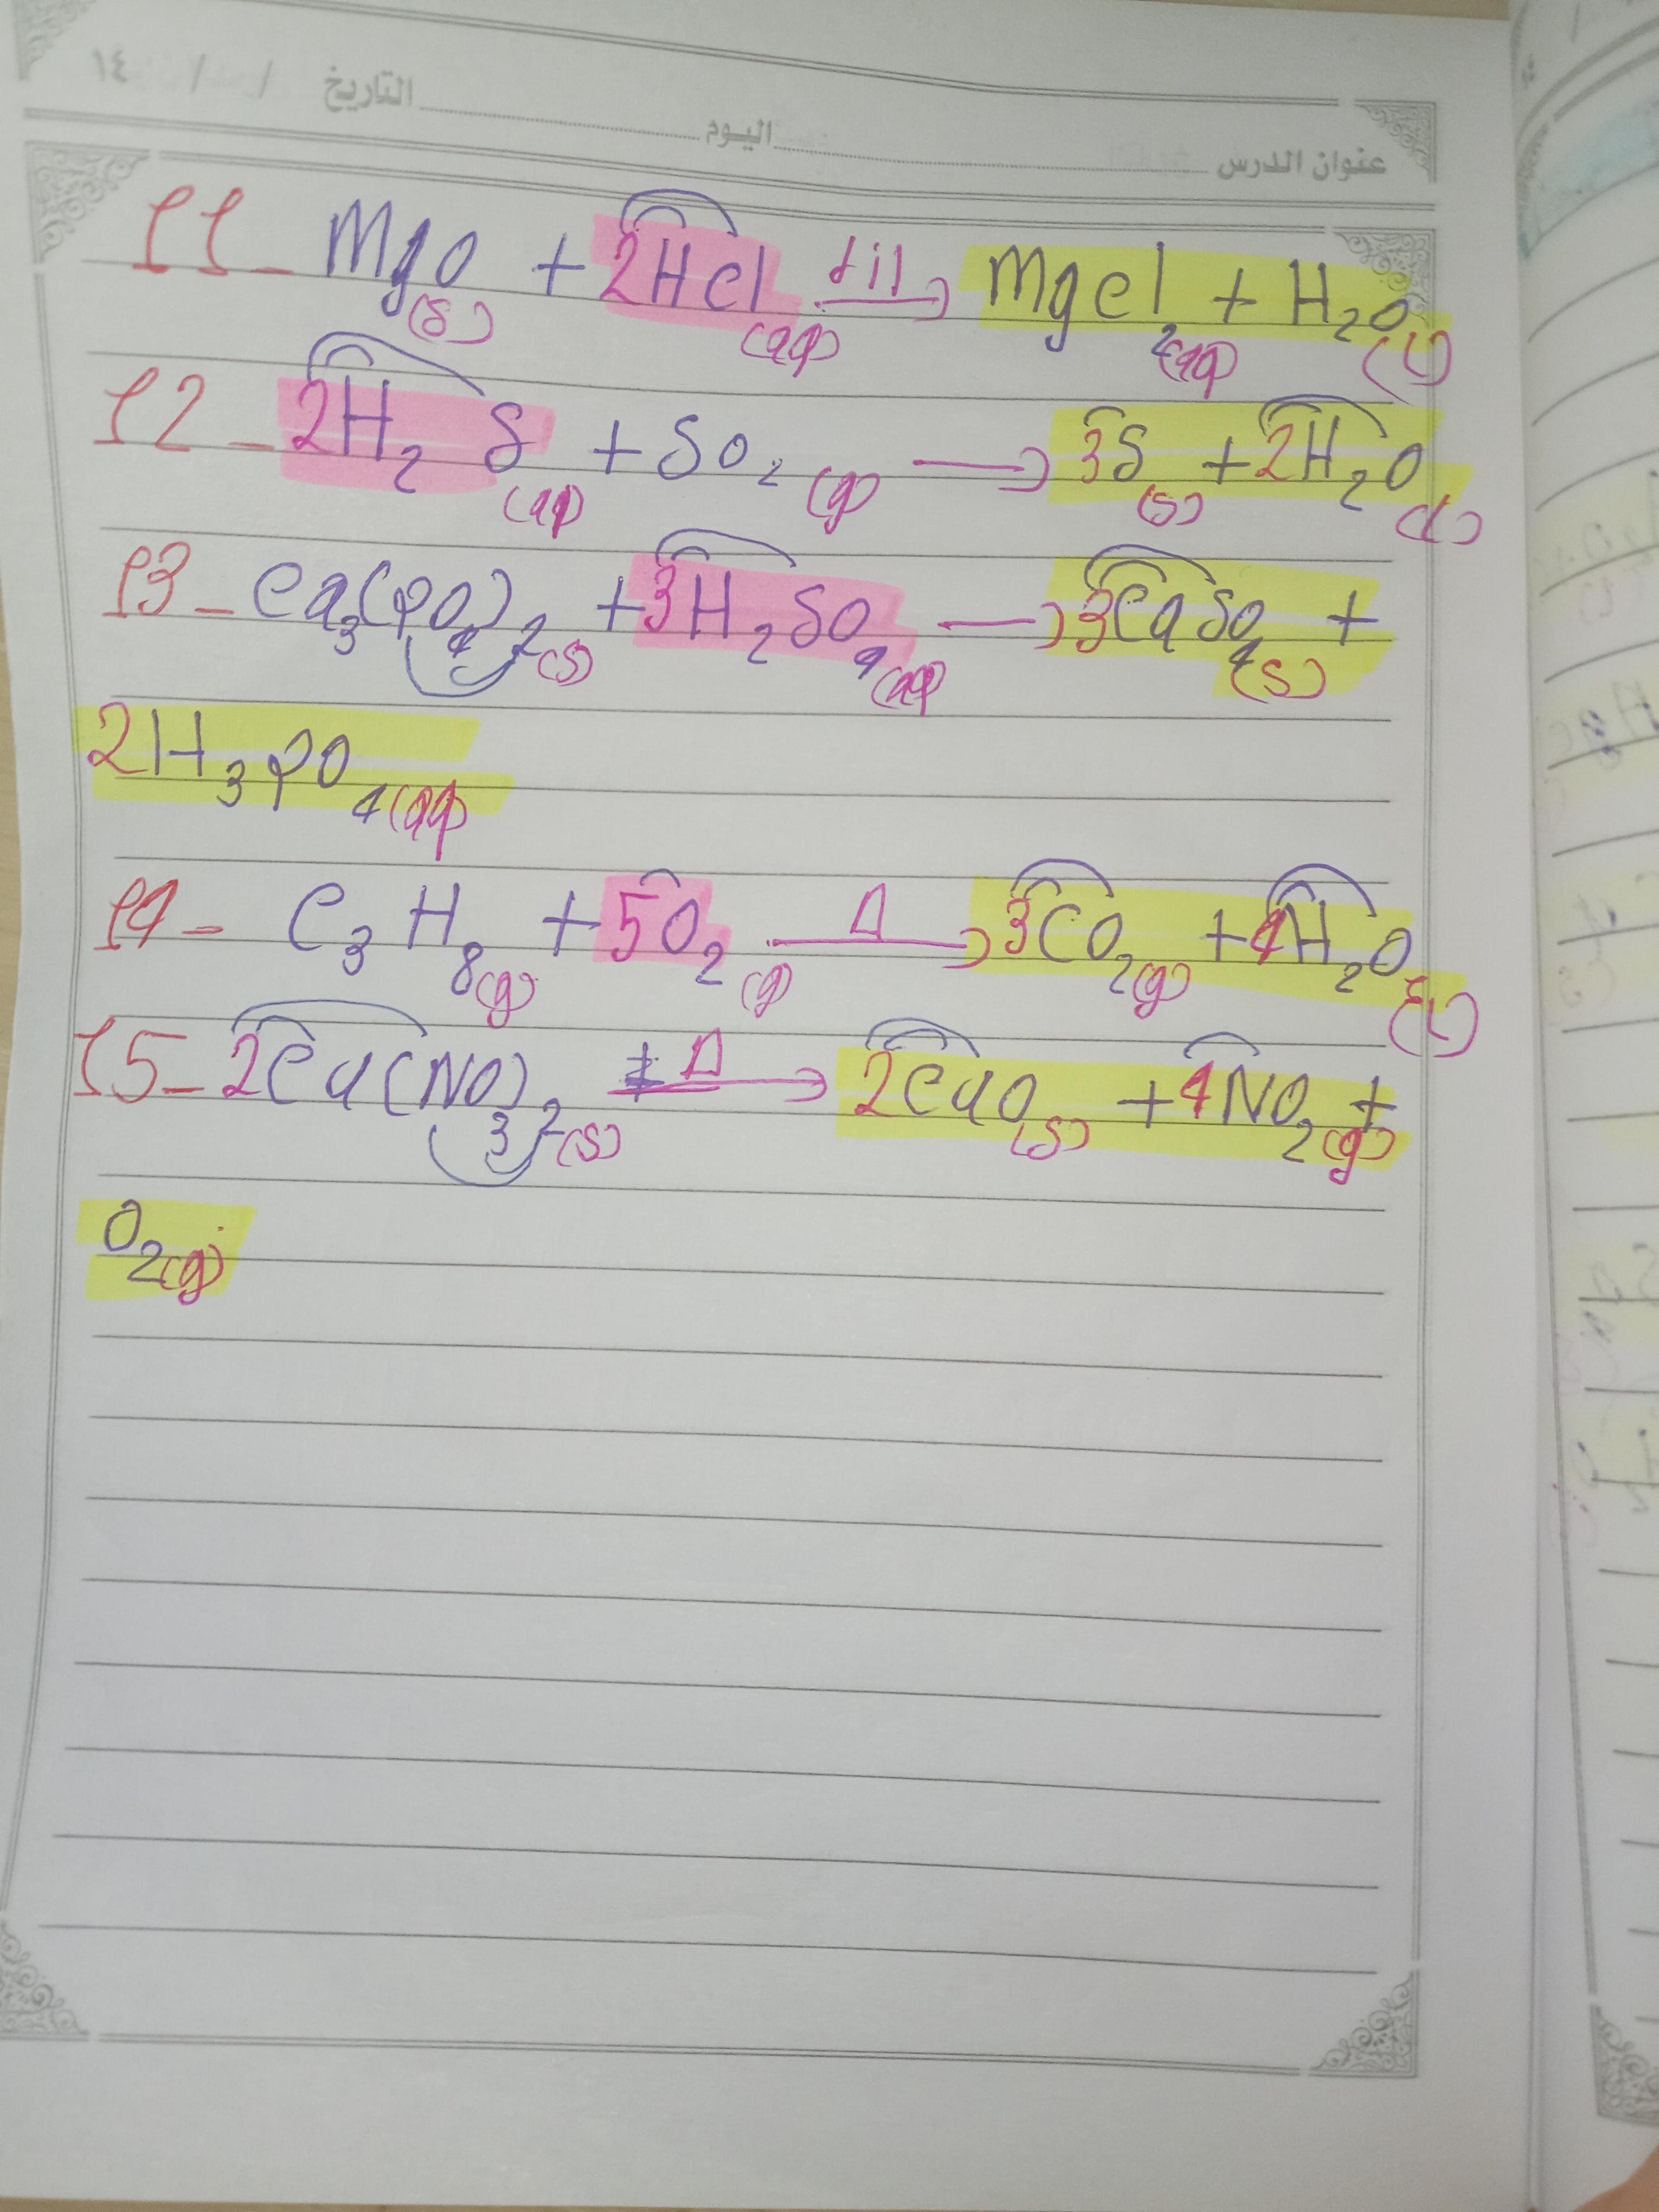 التاريخ / / ١٤
اليوم
عنوان الدرس
11- MgO(s) + 2HCl(aq) dil→ MgCl2(aq) + H2O(l)
12- 2H2S(aq) + SO2(g) → 3S(s) + 2H2O(l)
13- Ca3(PO4)2(s) + 3H2SO4(aq) → 3CaSO4(s) +
2H3PO4(aq)
14- C3H8(g) + 5O2(g) Δ→ 3CO2(g) + 4H2O(l)
15- 2Ca(NO3)2(s) Δ→ 2CaO(s) + 4NO2(g) +
O2(g)